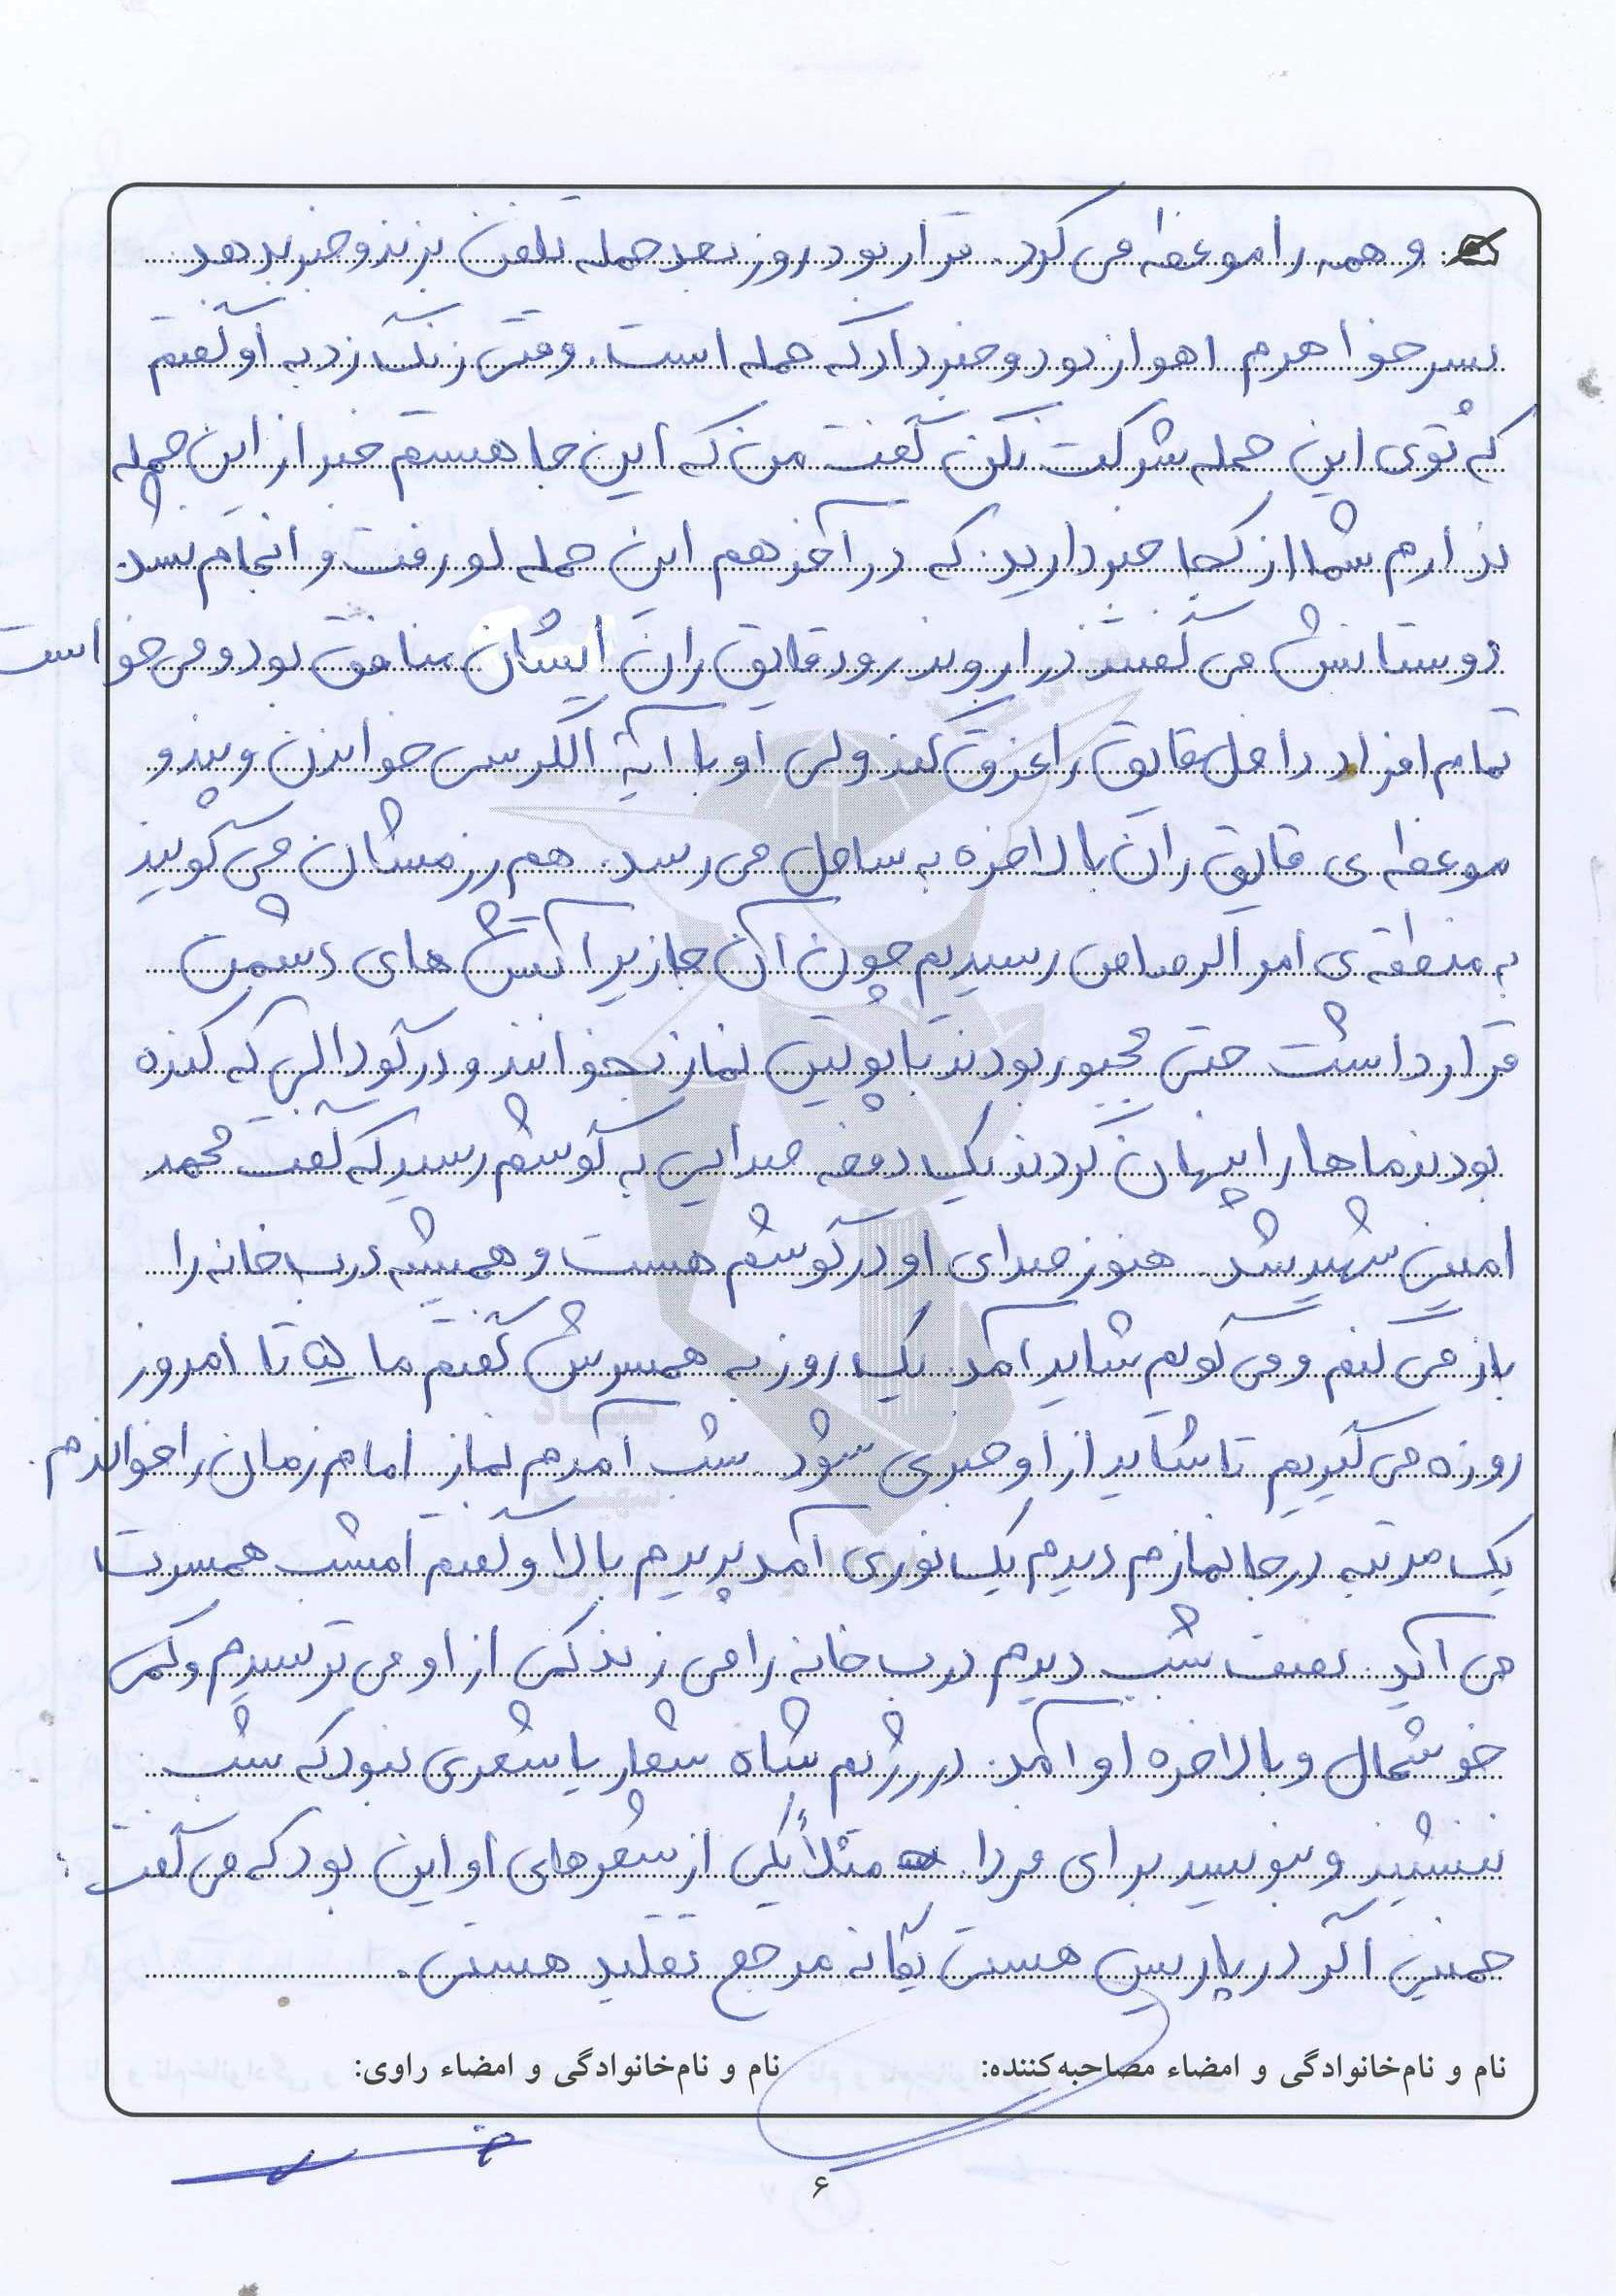 و همه را موعظه می کرد. قرار بود روز بعد حمله تلفن بزند و خبر بدهد
پسر خواهرم اهواز بود و خبر داد که حمله است. وقتی زنگ زد به او گفتم
که توی این حمله شرکت نکن گفت من که این جا هستم خبر از این حمله
ندارم شما از کجا خبر دارید. که در آخر هم این حمله لو رفت و انجام نشد.
دوستانش می گفتند در اروند رود قایق ران ایشان منافق بود و می خواست
تمام افراد داخل قایق را غرق کند ولی او با آیة الکرسی خواندن و پند و
موعظه ی قایق ران بالاخره به ساحل می رسد. هم رزمشان می گویند
به منطقه ی ام الرصاص رسیدیم چون آن جا زیر آتش های دشمن
قرار داشت حتی مجبور بودند با پوتین نماز بخوانند و در گودالی که کنده
بودند ماها را پنهان کردند یک دفعه صدایی به گوشم رسید که گفت محمد
امین شهید شد. هنوز صدای او در گوشم هست و همیشه درب خانه را
باز می کنم و می گویم شاید آمد. یک روز به همسرش گفتم ما ۵ تا امروز
روزه می گیریم تا شاید از او خبری شود. شب آمدم نماز امام زمان را خواندم.
یک مرتبه در جا نمازم دیدم یک نوری آمد پریدم بالا و گفتم امشب همسرت
می آید. نصف شب دیدم درب خانه را می زند کمی از او می ترسیدم و کمی
خوشحال و بالاخره او آمد. در رژیم شاه شعار یا شعری نبود که شب
ننشیند و ننویسد برای فردا. مثلاً یکی از شعرهای او این بود که می گفت:
خمینی اگر در پاریس هستی یگانه مرجع تقلید هستی.
نام و نام‌خانوادگی و امضاء مصاحبه‌کننده: نام و نام‌خانوادگی و امضاء راوی:
۶